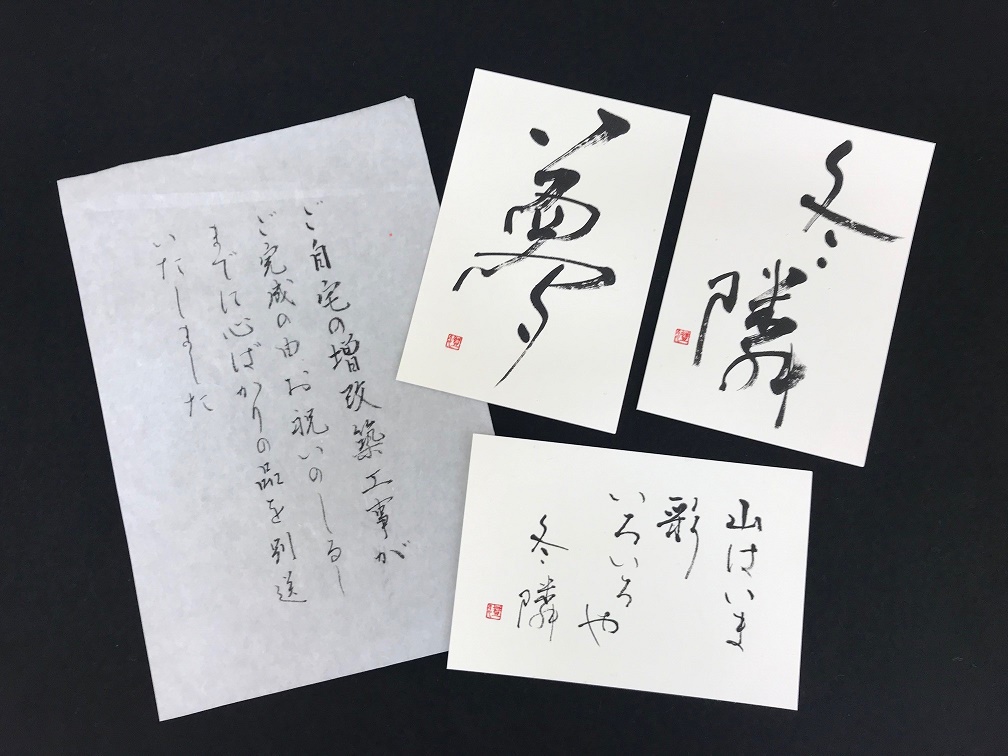 ご自宅の増改築工事が
ご完成の由お祝いのしるし
までに心ばかりの品を別送
いたしました
夢
冬隣
山はいま
彩
いろいろや
冬隣